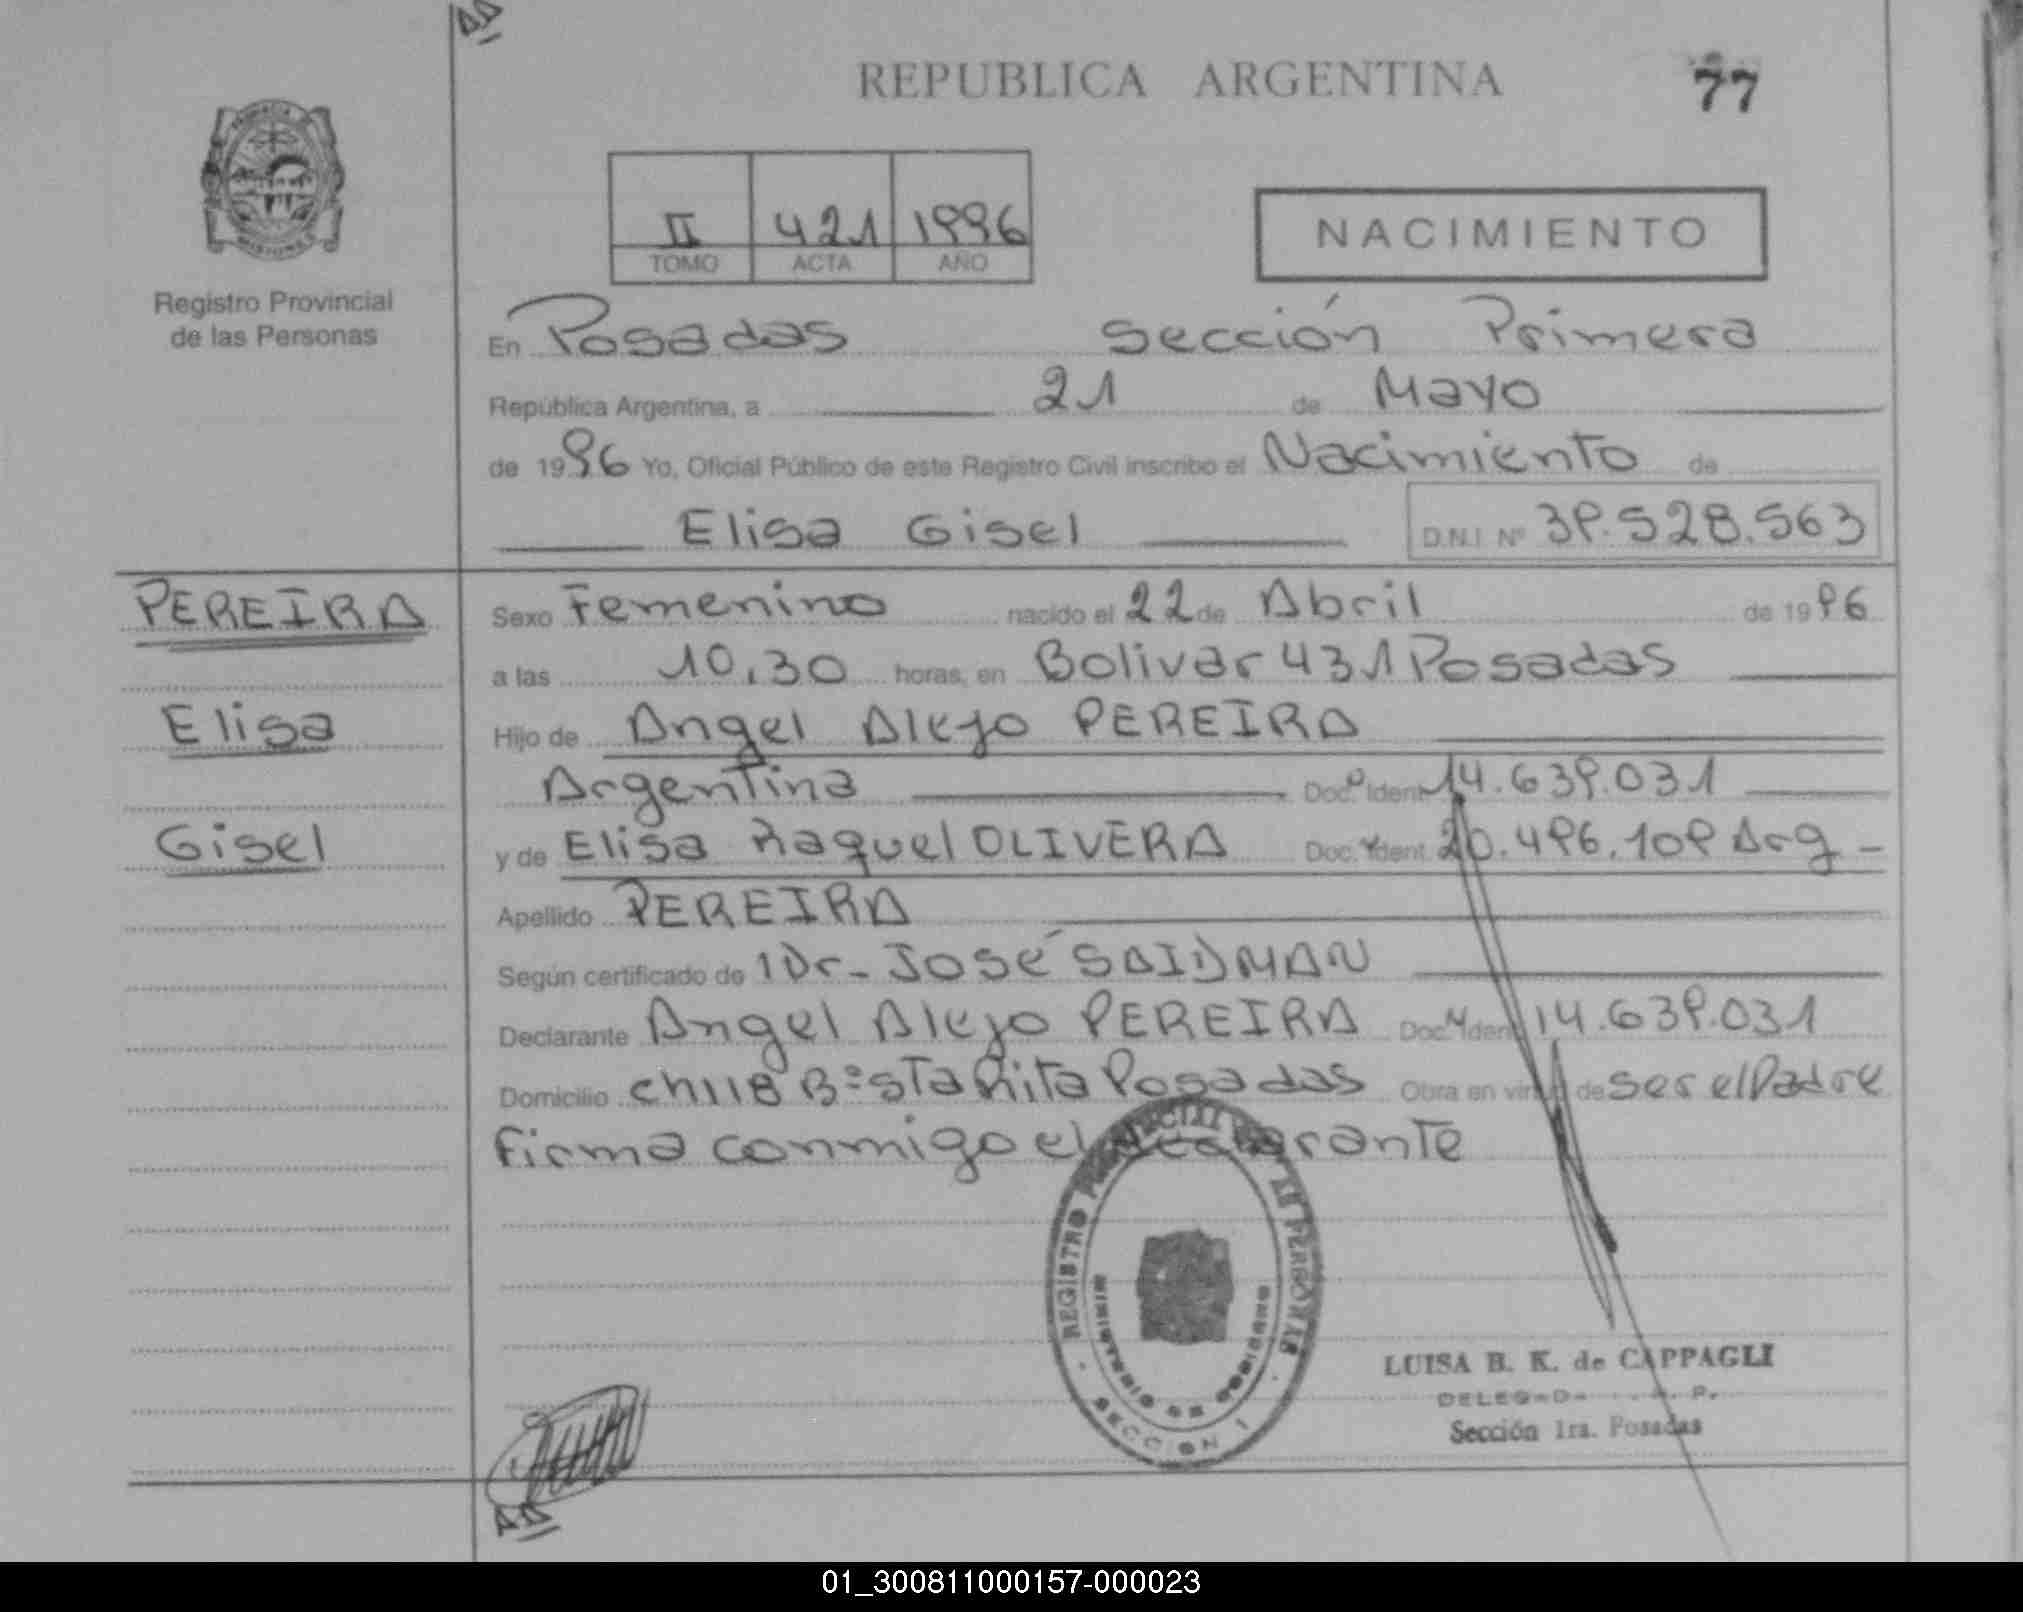 REPUBLICA ARGENTINA
77
II 421 1996
TOMO ACTA AÑO
NACIMIENTO
Registro Provincial
de las Personas
En Posadas Sección Primera
República Argentina, a 21 de Mayo
de 1996 Yo, Oficial Público de este Registro Civil inscribo el Nacimiento de
Elisa Gisel D.N.I. Nº 39.528.563
PEREIRA
Elisa
Gisel
Sexo Femenino nacido el 22 de Abril de 1996
a las 10,30 horas, en Bolivar 431 Posadas
Hijo de Angel Alejo PEREIRA
Argentina Doc. Ident. 14.639.031
y de Elisa Raquel OLIVERA Doc. Ident. 20.496.109 Arg
Apellido PEREIRA
Según certificado de Dr. José SAIDMAN
Declarante Angel Alejo PEREIRA Doc. Ident. 14.639.031
Domicilio Ch118 Bº Sta Rita Posadas Obra en virtud de ser el Padre
Firma conmigo el declarante
REGISTRO LAS PERSONAS
MINISTERIO DE GOBIERNO
SECCION 1
LUISA B. K. de CAPPAGLI
Sección 1ra. Posadas
01_300811000157-000023